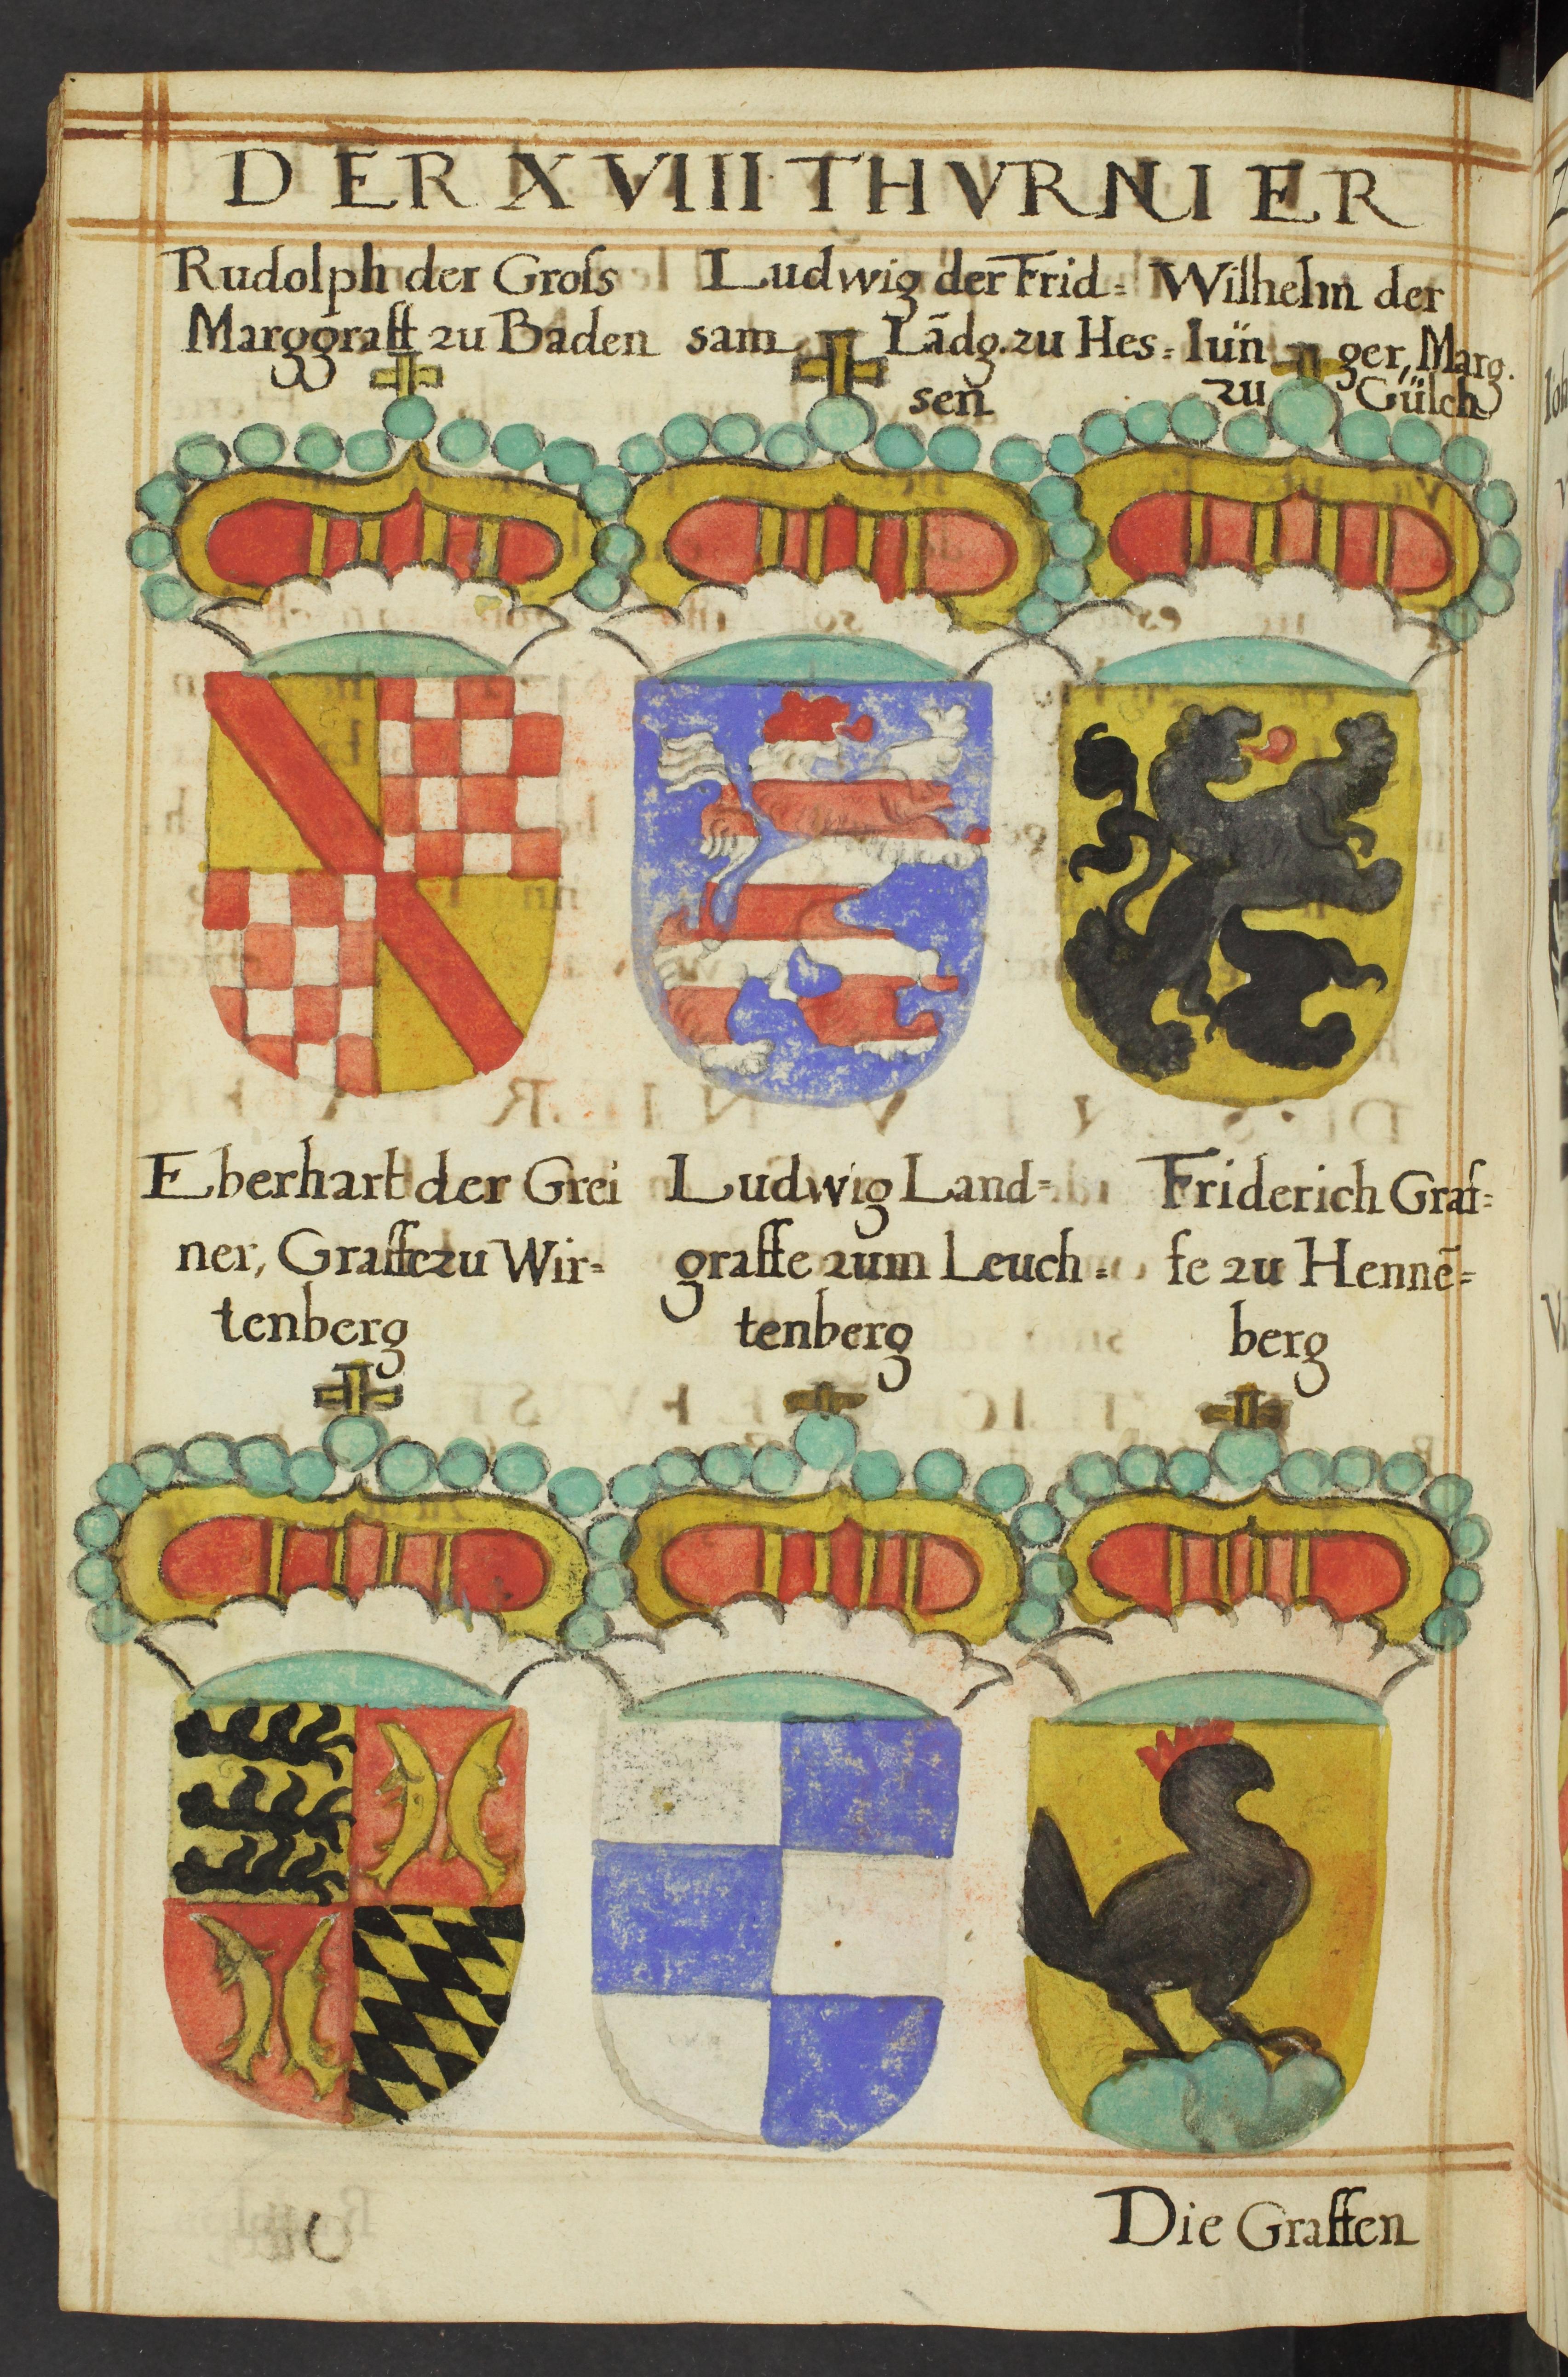 DER XVIII THVRNIER
Rudolph der Groſs
Marggraff zu Baden
Ludwig der Frid=
sam Lādg. zu Hes=
sen
Wilhelm der
Iün ger, Marg.
zu Gülch
Eberhart der Grei
ner, Graffe zu Wir=
tenberg
Ludwig Land=
graffe zum Leuch=
tenberg
Friderich Graf=
fe zu Hennē=
berg
Die Graffen